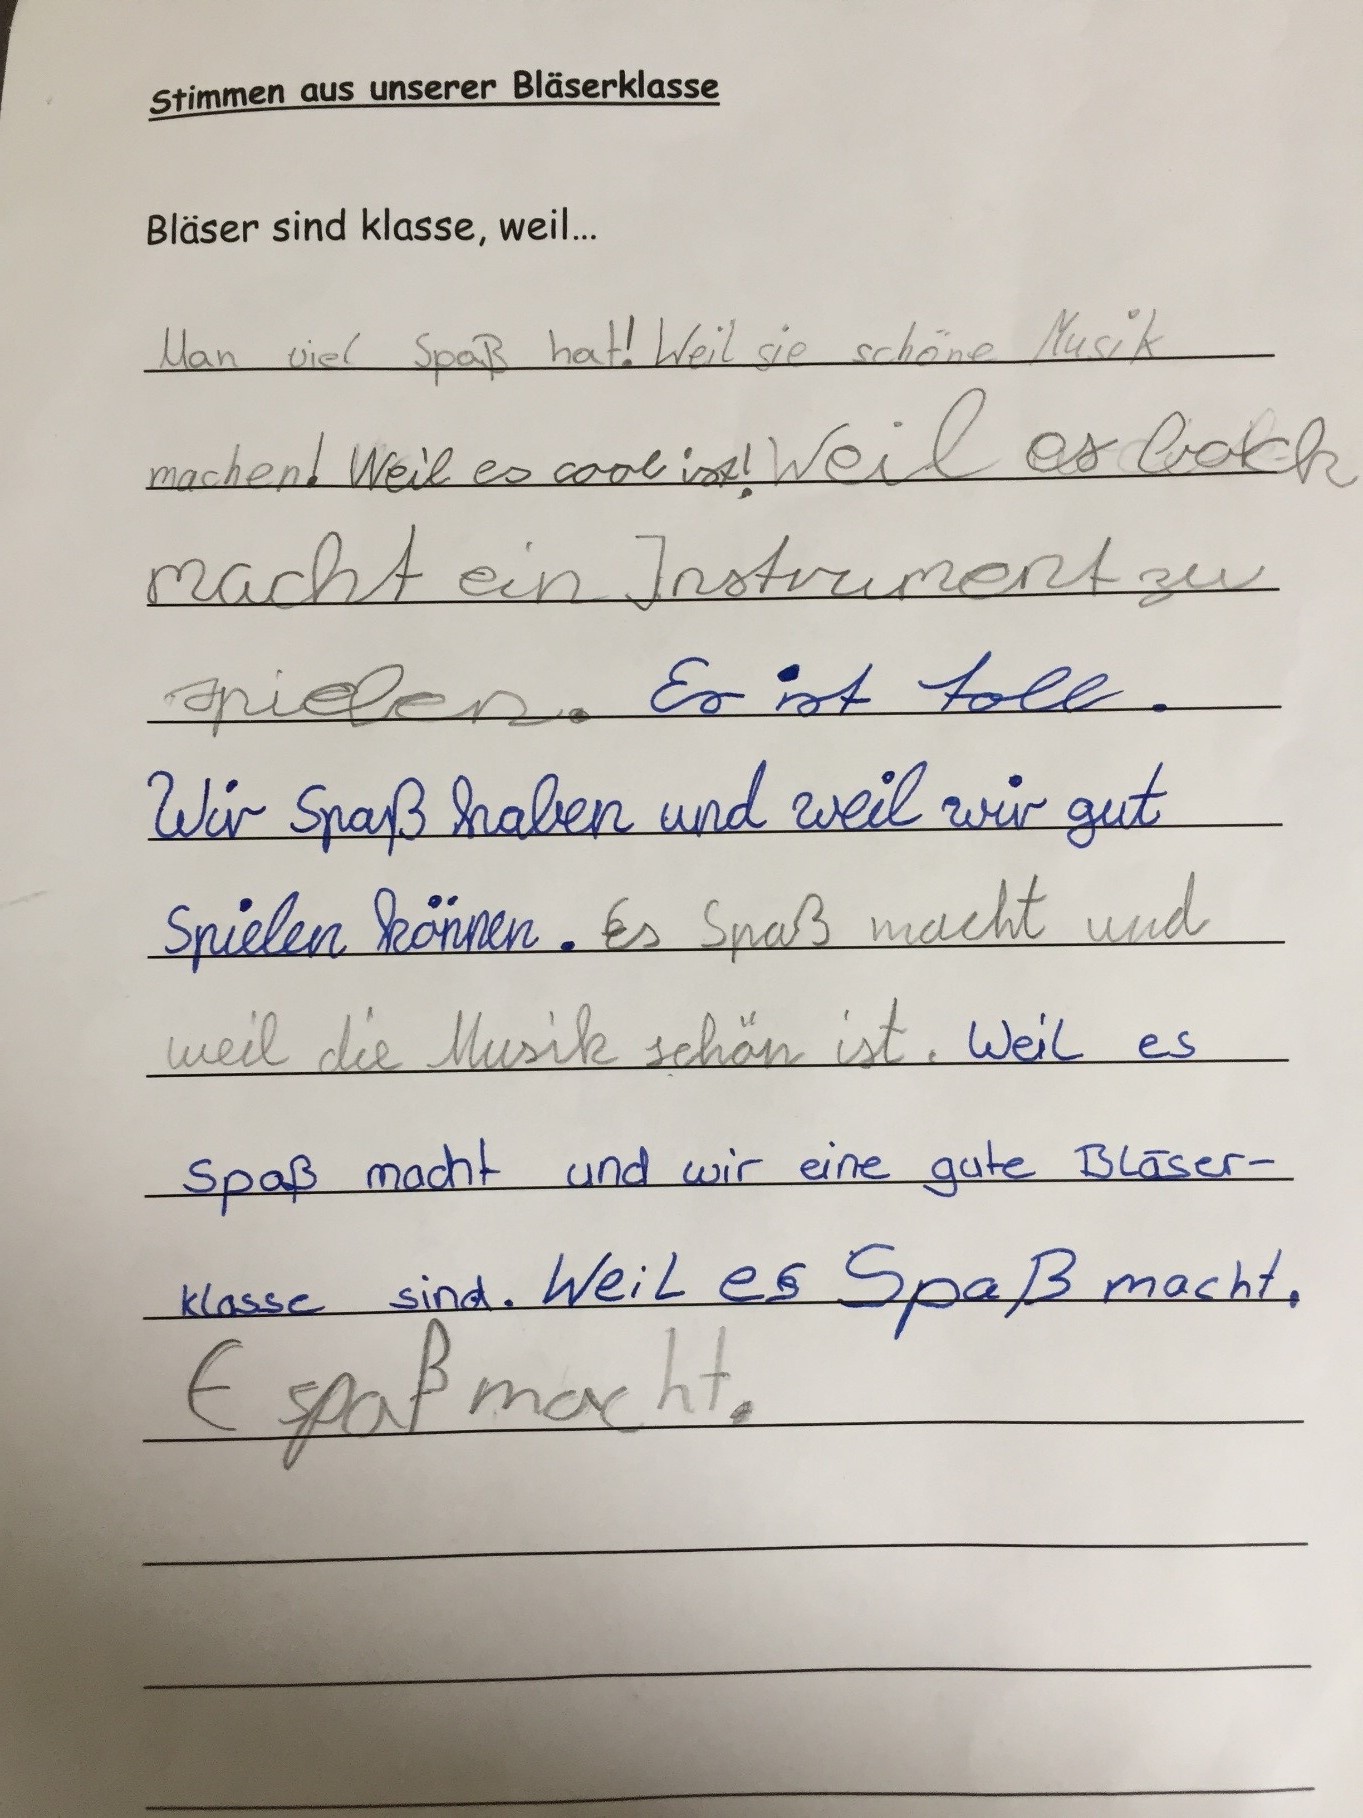 Stimmen aus unserer Bläserklasse
Bläser sind klasse, weil...
Man viel Spaß hat! Weil sie schöne Musik
machen! Weil es cool ist! Weil es bock
macht ein Instrument zu
spielen. Es ist toll.
Wir Spaß haben und weil wir gut
Spielen können. Es Spaß macht und
weil die Musik schön ist. Weil es
Spaß macht und wir eine gute Bläser-
klasse sind. Weil es Spaß macht.
E spaß macht.